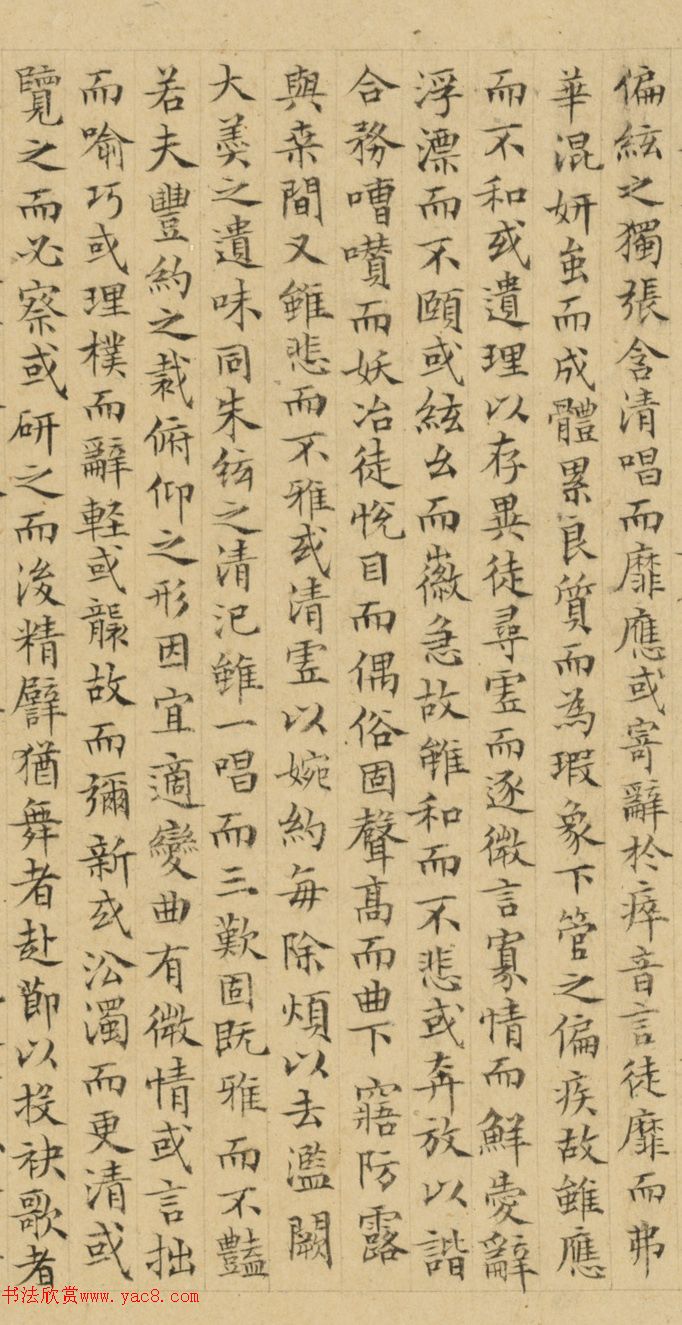 偏絃之獨張含清唱而靡應或寄辭於瘁音言徒靡而弗
華混妍蚩而成體累良質而為瑕象下管之偏疾故雖應
而不和或遺理以存異徒尋虛而逐微言寡情而鮮愛辭
浮漂而不頤或絃幺而徽急故雖和而不悲或奔放以諧
合務嘈囋而妖冶徒悅目而偶俗固聲高而曲下寤防露
與桒間又雖悲而不雅或清虛以婉約每除煩以去濫闕
大羹之遺味同朱絃之清汜雖一唱而三歎固既雅而不豔
若夫豐約之裁俯仰之形因宜適變曲有微情或言拙
而喻巧或理樸而辭軽或襲故而彌新或沿濁而更清或
覽之而必察或研之而後精譬猶舞者赴節以投袂歌者
书法欣赏www.yac8.com